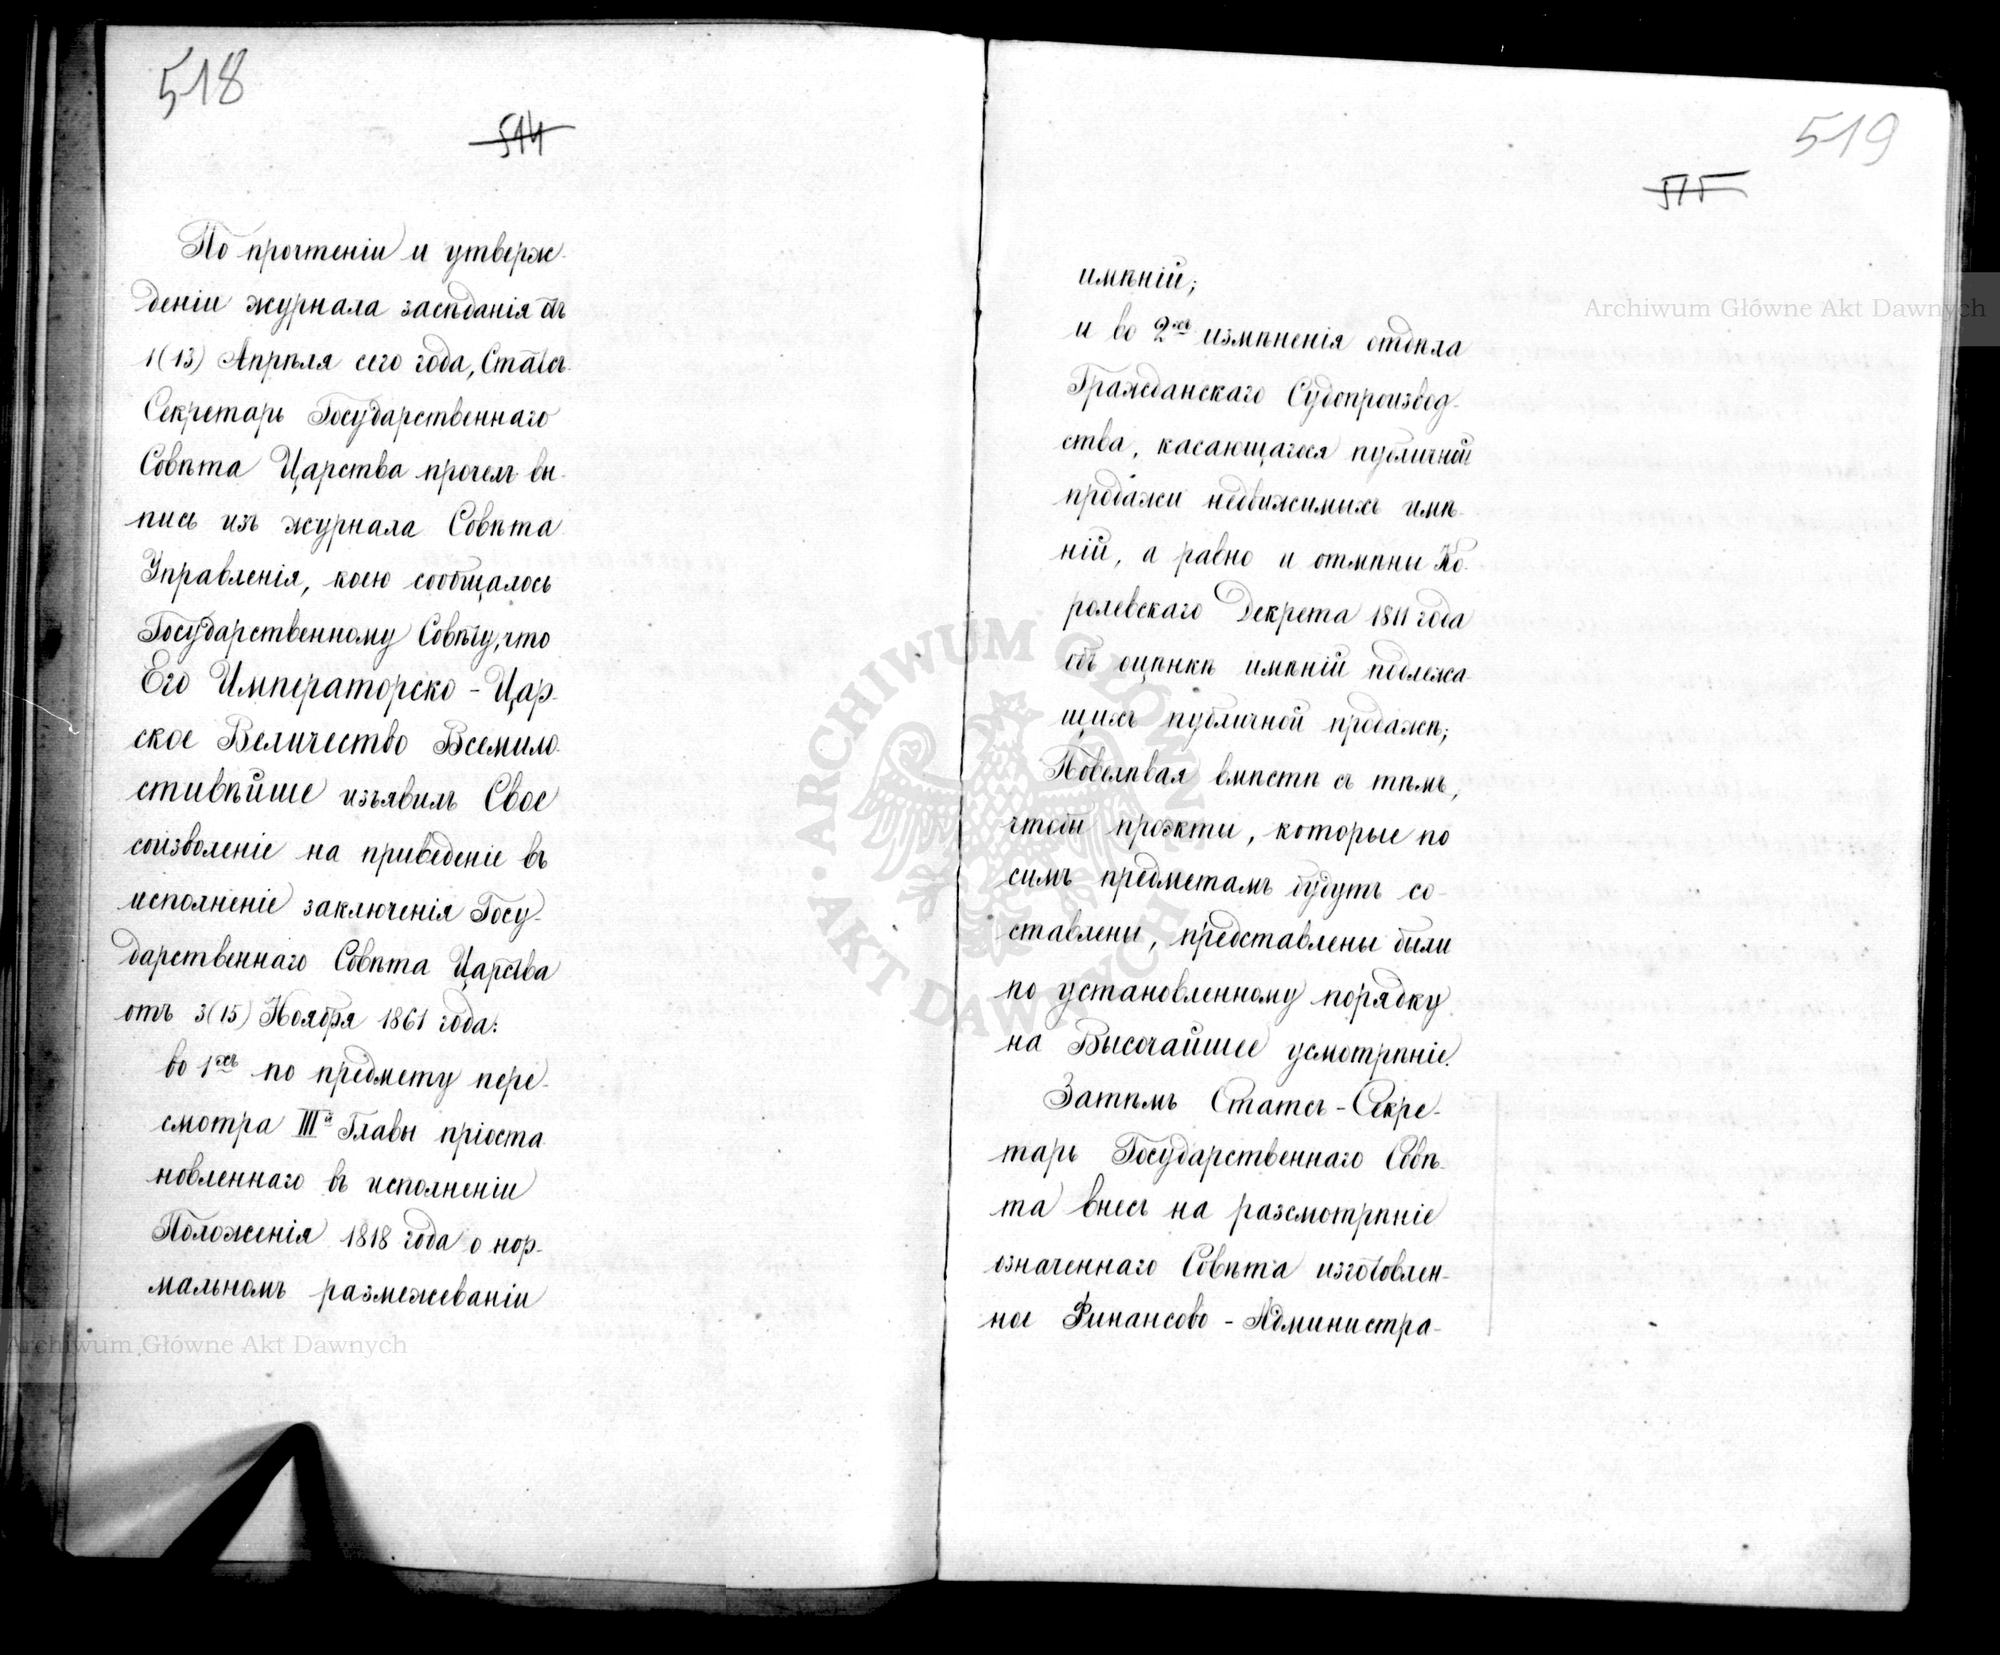 518
514
По прочтеніи и утверж-
деніи журнала засѣданія отъ
1(13) Апрѣля сего года, Статсъ-
Секретарь Государственнаго
Совѣта Царства прочелъ вы-
пись изъ журнала Совѣта
Управленія, коею сообщалось
Государственному Совѣту, что
Его Императорско-Цар-
ское Величество Всемило-
стивѣйше изъявилъ Свое
соизволеніе на приведеніе въ
исполненіе заключенія Госу-
дарственнаго Совѣта Царства
отъ 3(15) Ноября 1861 года:
во 1хъ по предмету пере-
смотра IIIй Главы пріоста
новленнаго въ исполненіи
Положенія 1818 года о нор-
мальномъ размежеваніи
519
515
имѣній;
и во 2хъ измѣненія отдѣла
Гражданскаго Судопроизвод-
ства, касающагося публичной
продажи недвижимыхъ имѣ-
ній, а равно и отмѣны Ко-
ролевскаго Декрета 1811 года
объ оцѣнкѣ имѣній подлежа-
щихъ публичной продажѣ;
Повелѣвая вмѣстѣ съ тѣмъ,
чтобы проэкты, которые по
симъ предметамъ будутъ со-
ставлены, представлены были
по установленному порядку
на Высочайшее усмотрѣніе.
Затѣмъ Статсъ-Секре-
тарь Государственнаго Совѣ-
та внесъ на разсмотрѣніе
означеннаго Совѣта изготовлен-
ное Финансово-Администра-
Archiwum Główne Akt Dawnych
Archiwum Główne Akt Dawnych
ARCHIWUM GŁÓWNE AKT DAWNYCH